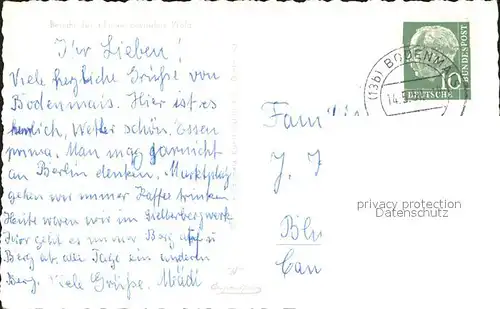 Ihr Lieben!
Viele herzliche Grüße von
Bodenmais. Hier ist es
herrlich, Wetter schön. Essen
prima. Man mag garnicht
an Berlin denken. Marktplatz
gehen wir immer Kaffee trinken.
Heute waren wir im Silberbergwerk
Hier geht es immer Berg auf u
Berg ab, alle Tage ein anderen
Berg. Viele Grüße. Mädi
(13b) BODENM
14.5
10
DEUTSCHE
BUNDESPOST
Fam
J. J
privacy protection
Datenschutz